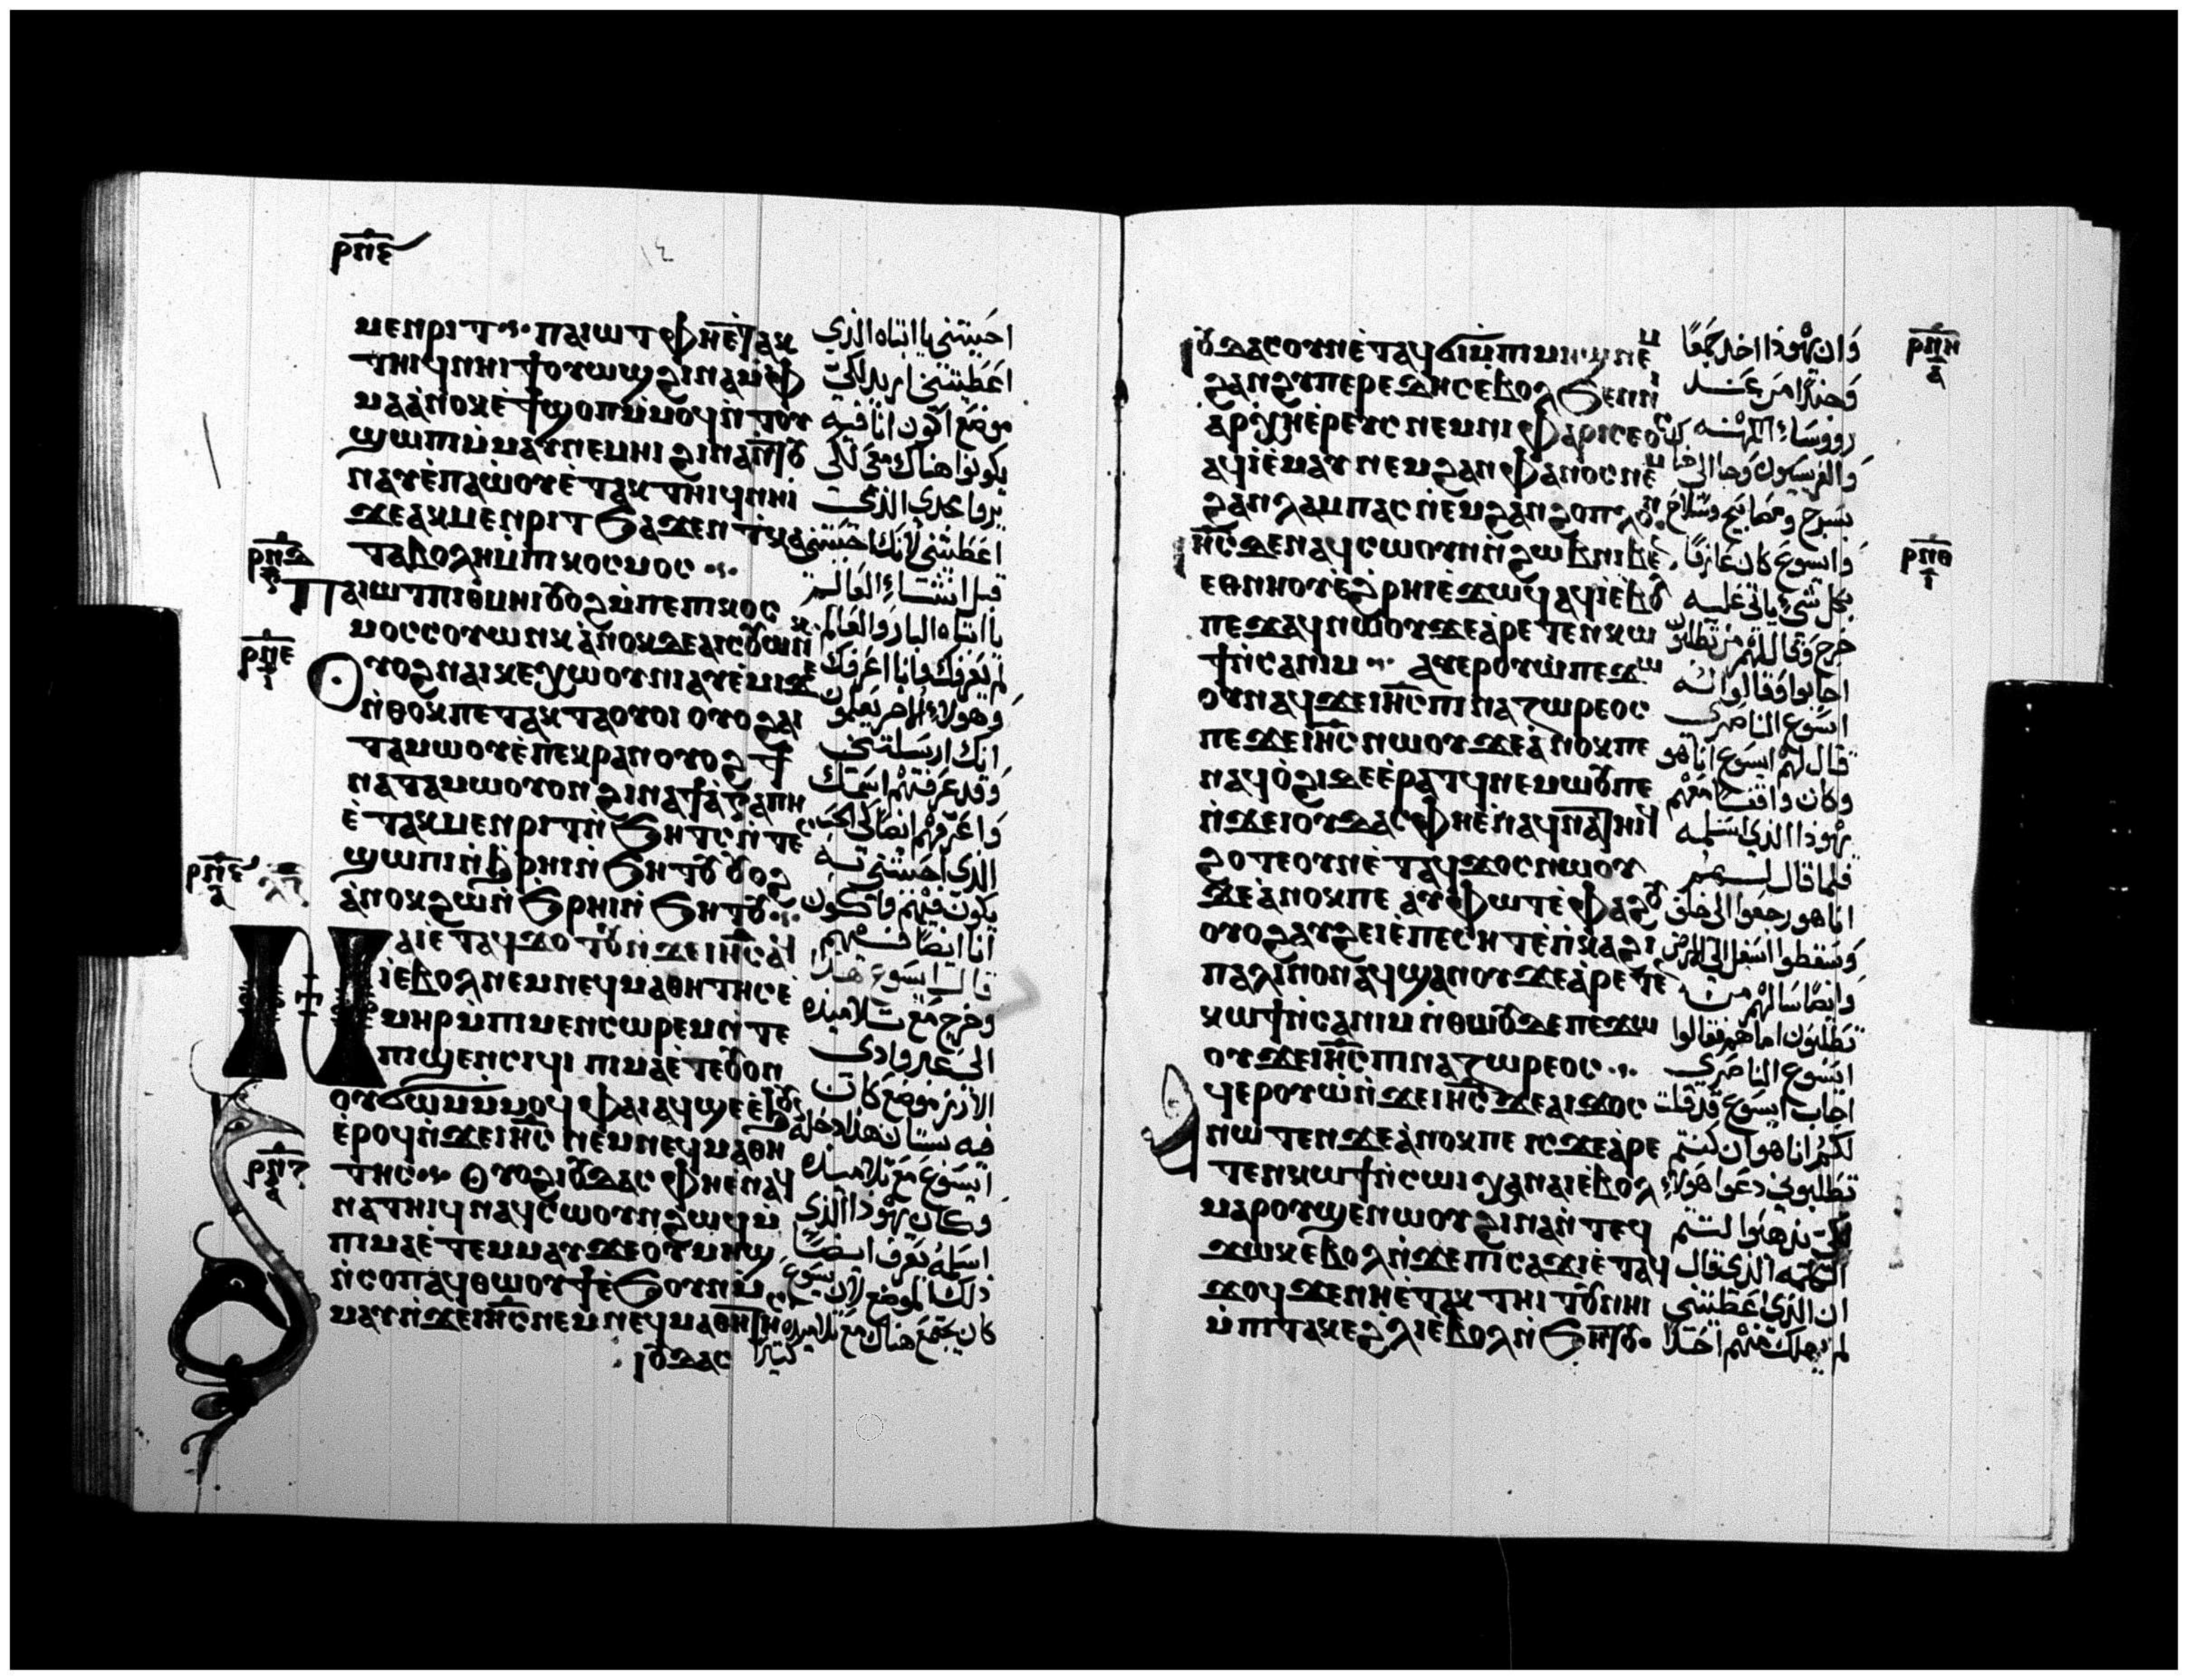 ⲣⲡⲋ
ⲙⲉⲛⲣⲓⲧ ⲡⲁⲓⲱⲧ ⲫⲏⲉ̇ⲧⲁⲕ
ⲧⲏⲓϥ ⲛⲏⲓ ϯⲟⲩⲱϣ ϩⲓⲛⲁ ⲙ̇ⲫ
ⲙⲁ ⲁ̇ⲛⲟⲕ ⲉ̇ϯϣⲟⲡ ⲙ̇ⲙⲟϥ ⲛ̇ⲧⲟⲩ
ϣⲱⲡⲓ ⲙ̇ⲙⲁⲩ ⲛⲉⲙⲏⲓ ϩⲓⲛⲁ ⲛ̇ⲧⲟⲩ
ⲛⲁⲩ ⲉ̇ⲡⲁⲱ̇ⲟⲩ ⲉ̇ⲧⲁⲕ ⲧⲏⲓϥ ⲛⲏⲓ
ϫⲉ ⲁⲕⲙⲉⲛⲣⲓⲧ ϧⲁϫⲉⲛ ⲧⲕⲁ
ⲧⲁⲃⲟⲗⲏ ⲙ̇ⲡⲓⲕⲟⲥⲙⲟⲥ
ⲡⲁⲓⲱⲧ ⲡⲓⲑⲙⲏⲓ ⲟⲩⲟϩ ⲙ̇ⲡⲉ ⲡⲓⲕⲟⲥ
ⲙⲟⲥ ⲥⲟⲩⲱⲛⲕ ⲁ̇ⲛⲟⲕ ⲇⲉ ⲁⲓⲥⲟⲩⲱⲛⲕ
ⲟⲩⲟϩ ⲛⲁⲓⲕⲉⲭⲱⲟⲩⲛⲓ ⲁⲩⲉ̇ⲙⲓ ϫⲉ
ⲛ̇ⲑⲟⲕ ⲡⲉⲧⲁⲕⲧⲁⲟⲩⲟⲓ ⲟⲩⲟϩ ⲁⲓ
ⲧⲁⲙⲱⲟⲩ ⲉ̇ⲡⲉⲕⲣⲁⲛ ⲟⲩⲟϩ ϯ
ⲛⲁⲧⲁⲙⲱⲟⲩ ⲟⲛ ϩⲓⲛⲁ ϯⲁ̇ⲅⲁⲡⲏ
ⲉ̇ⲧⲁⲕⲙⲉⲛⲣⲓⲧ ⲛ̇ϧⲏⲧⲥ ⲛ̇ⲧⲉⲥ
ϣⲱⲡⲓ ⲛ̇ϩ̇ⲣⲏⲓ ⲛ̇ϧⲏⲧⲟⲩ ⲟⲩⲟϩ
ⲁ̇ⲛⲟⲕ ϩⲱ ⲛ̇ϧⲣⲏⲓ ⲛ̇ϧⲏⲧⲟⲩ
ⲛⲁⲓ ⲉ̇ⲧⲁϥϫⲟⲧⲟⲩ ⲛ̇ϫⲉ ⲓⲏⲥ ⲁϥ
ⲓ̇ ⲉ̇ⲃⲟⲗ ⲛⲉⲙ ⲛⲉϥⲙⲁⲑⲏⲧⲏⲥ ⲉ̇
ⲙⲏⲣ ⲙ̇ⲡⲓⲙⲉⲛⲥⲱⲣⲉⲙ ⲛ̇ⲧⲉ
ⲡⲓϣⲉⲛⲥⲓϥⲓ ⲡⲓⲙⲁ ⲉ̇ⲧⲉⲟⲩⲟⲛ
ⲟⲩϭⲱⲙ ⲙ̇ⲙⲟϥ ⲫⲁⲓ ⲁϥϣⲉ ⲉ̇ϧⲟⲩⲛ
ⲉ̇ⲣⲟϥ ⲛ̇ϫⲉ ⲓⲏⲥ ⲛⲉⲙ ⲛⲉϥⲙⲁⲑⲏ
ⲧⲏⲥ ⲟⲩⲟϩ ⲓⲟⲩⲇⲁⲥ ⲫⲏⲉⲛⲁϥ
ⲛⲁⲧⲏⲓϥ ⲛⲁϥⲥⲱⲟⲩⲛ ϩⲱϥ ⲙ̇
ⲡⲓⲙⲁ ⲉ̇ⲧⲉⲙⲙⲁⲩ ϫⲉ ⲟⲩⲙⲏϣ
ⲛ̇ⲥⲟⲡ ⲁϥⲑⲱⲟⲩϯ ⲉ̇ϧⲟⲩⲛ ⲙ̇
ⲙⲁⲩ ⲛ̇ϫⲉ ⲓⲏⲥ ⲛⲉⲙ ⲛⲉϥⲙⲁⲑⲏⲧⲏⲥ
ⲓⲟⲩⲇⲁⲥ
احببتني يا ابتاه الذي
اعطيتني اريد لكي
موضع اكون انا فيه
يكونوا هناك معي لكي
يروا مجدي الذي
اعطيتني لانك احببتني
قبل انشاء العالم
يا ابتاه البار والعالم
لم يعرفك وانا اعرفك
وهولاء الاخر يعلمون
انك ارسلتني
وقد عرفتهم اسمك
واعرفهم ايضا لكي الحب
الذي احببتني به
يكون فيهم واكون
انا ايضا فيهم
قال ايسوع هذا
وخرج مع تلاميذه
الى عبر وادي
الارز موضع كان
فيه بستان هذا دخله
ايسوع مع تلاميذه
وكان يهوذا الذي
اسلمه يعرف ايضا
ذلك الموضع لان يسوع
كان يجتمع هناك مع تلاميذه
كثيرا
ⲣⲡⲇ
ⲣⲡⲉ
ⲣⲡⲋ
ⲣⲡⲍ
ⲓⲟⲩⲇⲁⲥ ⲟⲩⲛ ⲉ̇ⲧⲁϥϭⲓ ⲙ̇ⲡⲓⲙⲏϣ ⲛⲉⲙ
ϩⲁⲛϩⲩⲡⲉⲣⲉⲧⲏⲥ ⲉⲃⲟⲗ ϧⲉⲛ ⲛⲓ
ⲁⲣⲭⲏⲉ̇ⲣⲉⲩⲥ ⲛⲉⲙ ⲛⲓⲫⲁⲣⲓⲥⲉⲟⲥ
ⲁϥⲓ̇ ⲉ̇ⲙⲁⲩ ⲛⲉⲙ ϩⲁⲛⲫⲁⲛⲟⲥ ⲛⲉⲙ
ϩⲁⲛⲗⲁⲙⲡⲁⲥ ⲛⲉⲙ ϩⲁⲛϩⲟⲡⲗⲟⲛ
ⲓⲏⲥ ⲇⲉ ⲛⲁϥⲥⲱⲟⲩⲛ ⲛ̇ϩⲱⲃ ⲛⲓⲃⲉⲛ
ⲉⲑⲛⲏⲟⲩ ⲉ̇ϩ̇ⲣⲏⲓ ⲉ̇ϫⲱϥ ⲁϥⲓ̇ ⲉ̇ⲃⲟⲗ
ⲡⲉϫⲁϥ ⲛⲱⲟⲩ ϫⲉ ⲁ̇ⲣⲉⲧⲉⲛⲕⲱ
ϯ ⲛ̇ⲥⲁ ⲛⲓⲙ ⲁⲩⲉⲣⲟⲩⲱ̇ ⲡⲉϫⲱ
ⲟⲩ ⲛⲁϥ ϫⲉ ⲓⲏⲥ ⲡⲓⲛⲁⲍⲱⲣⲉⲟⲥ
ⲡⲉϫⲉ ⲓⲏⲥ ⲛⲱⲟⲩ ϫⲉ ⲁ̇ⲛⲟⲕ ⲡⲉ
ⲛⲁϥⲟ̇ϩⲓ ⲇⲉ ⲉ̇ⲣⲁⲧϥ ⲛⲉⲙⲱⲟⲩ ⲡⲉ
ⲛ̇ϫⲉ ⲓⲟⲩⲇⲁⲥ ⲫⲏⲉ̇ⲛⲁϥⲛⲁⲧⲏⲓϥ
ϩⲟⲧⲉ ⲟⲩⲛ ⲉ̇ⲧⲁϥϫⲟⲥ ⲛⲱⲟⲩ
ϫⲉ ⲁ̇ⲛⲟⲕ ⲡⲉ ⲁⲩⲫⲱⲧ ⲉ̇ⲫⲁϩⲟⲩ
ⲟⲩⲟϩ ⲁⲩϩⲉⲓ ⲉ̇ⲡⲉⲥⲏⲧ ⲉ̇ⲡ̇ⲕⲁϩⲓ
ⲡⲁⲗⲓⲛ ⲟⲛ ⲁϥϣⲁⲛⲟⲩ ϫⲉ ⲁ̇ⲣⲉⲧⲉⲛ
ⲕⲱϯ ⲛ̇ⲥⲁ ⲛⲓⲙ ⲛ̇ⲑⲱⲟⲩ ⲇⲉ ⲡⲉϫⲱ
ⲟⲩ ϫⲉ ⲓⲏⲥ ⲡⲓⲛⲁⲍⲱⲣⲉⲟⲥ
ⲁϥⲉⲣⲟⲩⲱ̇ ⲛ̇ϫⲉ ⲓⲏⲥ ϫⲉ ⲁⲓϫⲟⲥ
ⲛⲱⲧⲉⲛ ϫⲉ ⲁ̇ⲛⲟⲕ ⲡⲉ ⲓⲥϫⲉ ⲁ̇ⲣⲉ
ⲧⲉⲛⲕⲱϯ ⲛ̇ⲥⲱⲓ ⲭⲁ ⲛⲁⲓ ⲉ̇ⲃⲟⲗ
ⲙⲁⲣⲟⲩϣⲉⲛⲱⲟⲩ ϩⲓⲛⲁ ⲛ̇ⲧⲉϥ
ϫⲱⲕ ⲉⲃⲟⲗ ⲛ̇ϫⲉ ⲡⲓⲥⲁϫⲓ ⲉ̇ⲧⲁϥ
ϫⲟϥ ϫⲉ ⲛⲏⲉ̇ⲧⲁⲕ ⲧⲏⲓⲧⲟⲩ ⲛⲏⲓ
ⲙ̇ⲡⲓⲧⲁⲕⲉ ϩ̇ⲗⲓ ⲉ̇ⲃⲟⲗ ⲛ̇ϧⲏⲧⲟⲩ
وان يهوذا اخذ جمعا
وخداما من عند
رووساء الكهنه
والفريسيون وجا الى هناك
بسرج ومصابيح وسلاح
وايسوع كان عارفا
بكل شي ياتي عليه
خرج وقال لهم من تطلبون
اجابوا وقالوا له
ايسوع الناصري
قال لهم ايسوع انا هو
وكان واقفا معهم
يهوذا الذي اسلمه
فلما قال لهم
انا هو رجعوا الى خلف
وسقطوا اسفل الى الارض
وايضا سالهم من
تطلبون اما هم فقالوا
ايسوع الناصري
اجاب ايسوع قد قلت
لكم انا هو ان كنتم
تطلبوني دعوا هولاء
لكي يذهبوا لتتم
الكلمه الذي قال
ان الذي اعطيتني
لم يهلك منهم احدا
ⲣⲡⲏ
ⲁ
ⲣⲡⲑ
ⲅ